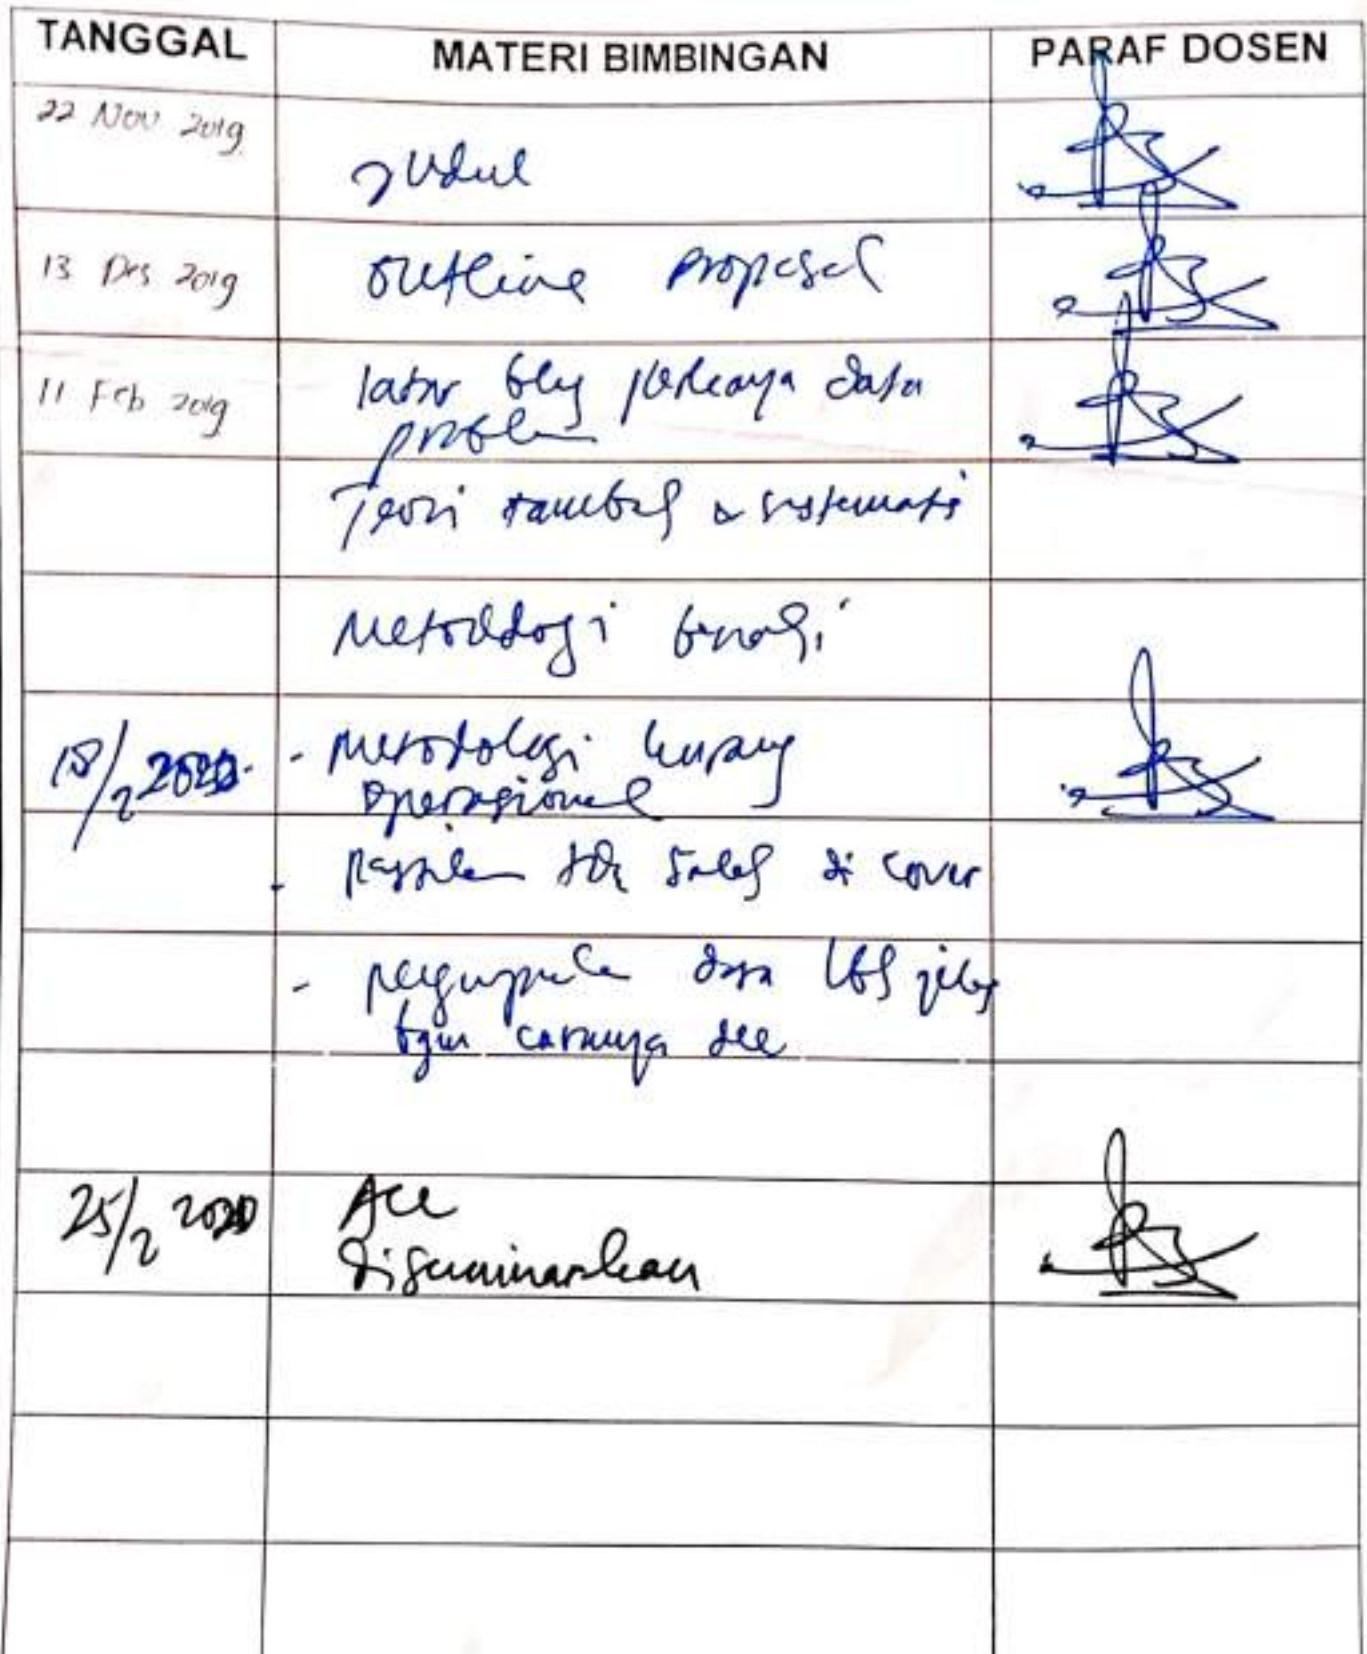 TANGGAL MATERI BIMBINGAN PARAF DOSEN
22 Nov 2019 Judul
13 Des 2019 Outline proposal
11 Feb 2019 latar blkg perkaya data
problem
Teori tambah & sistematis
Metodologi
18/2 2020 - Metodologi kurang
operasional
- di cover
- data lbh jelas
bgm caranya dll
25/2 2020 Acc
Diseminarkan